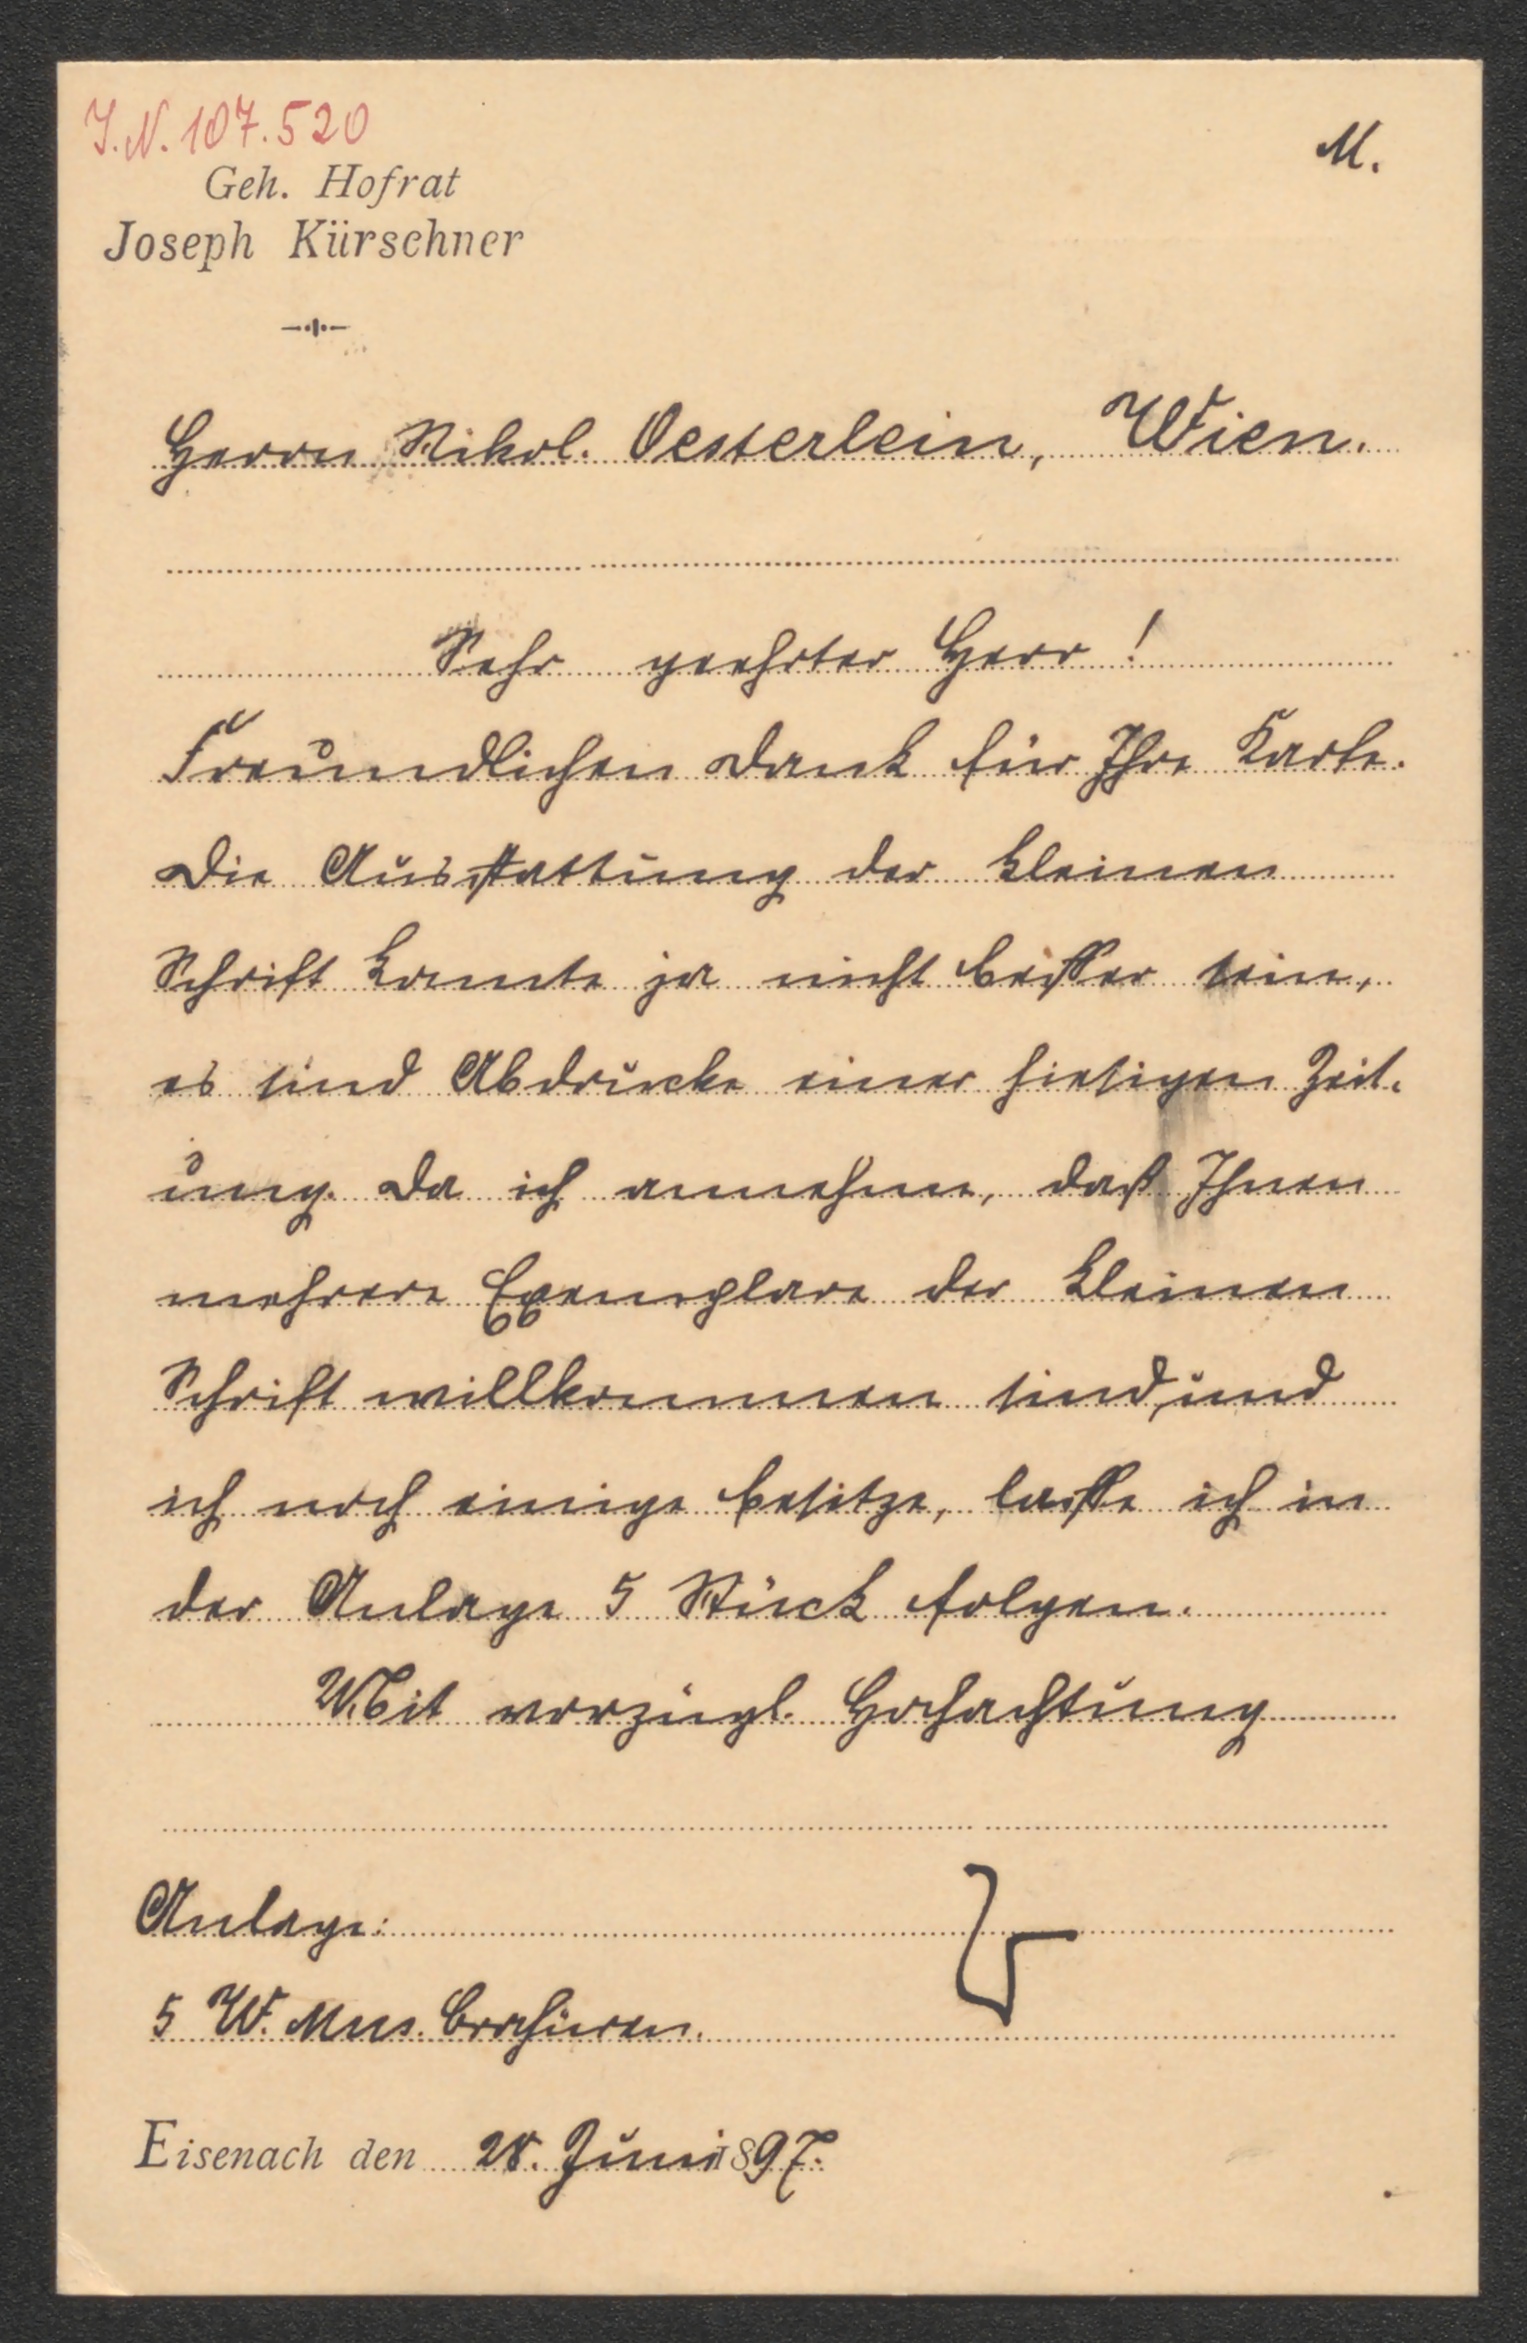 I.N. 107.520
M.
Geh. Hofrat
Joseph Kürschner
Herrn Nikol. Oesterlein, Wien.
Sehr geehrter Herr!
Freundlichen Dank für Ihre Karte.
Die Ausstattung der kleinen
Schrift konnte ja nicht besser sein,
es sind Abdrücke einer hiesigen Zeit-
ung. Da ich annehme, daß Ihnen
mehrere Exemplare der kleinen
Schrift willkommen sind, und
ich noch einige besitze, lasse ich in
der Anlage 5 Stück folgen.
Mit vorzügl. Hochachtung
Anlage:
5 W. Mus. Brochüren.
Eisenach den 28. Juni 1897.